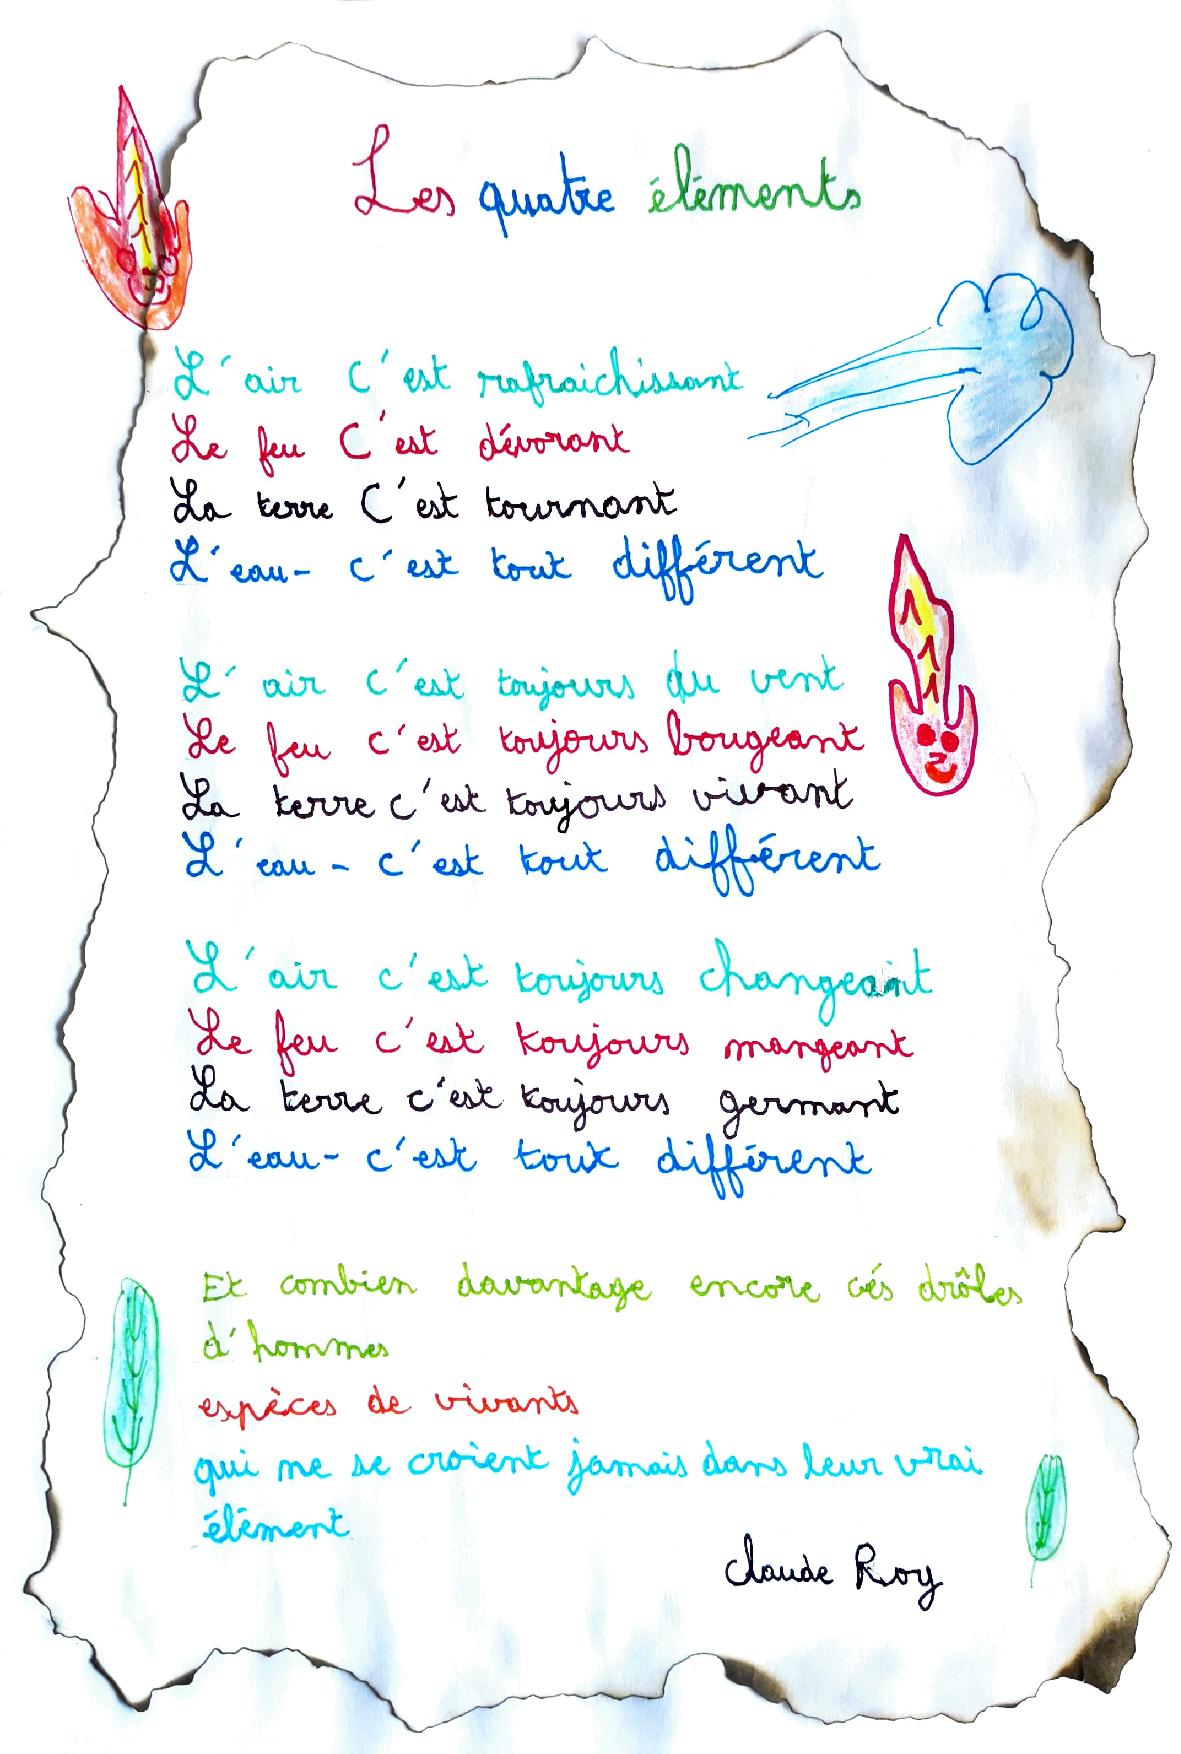 Les quatre éléments
L'air C'est rafraichissant
Le feu C'est dévorant
La terre C'est tournant
L'eau- c'est tout différent
L'air c'est toujours du vent
Le feu c'est toujours bougeant
La terre c'est toujours vivant
L'eau - c'est tout différent
L'air c'est toujours changeant
Le feu c'est toujours mangeant
La terre c'est toujours germant
L'eau- c'est tout différent
Et combien davantage encore cés drôles
d'hommes
espèces de vivants
qui me se croient jamais dans leur vrai
élément
Claude Roy